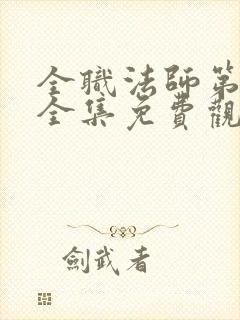 全職法師第
全集免費觀
劍武者